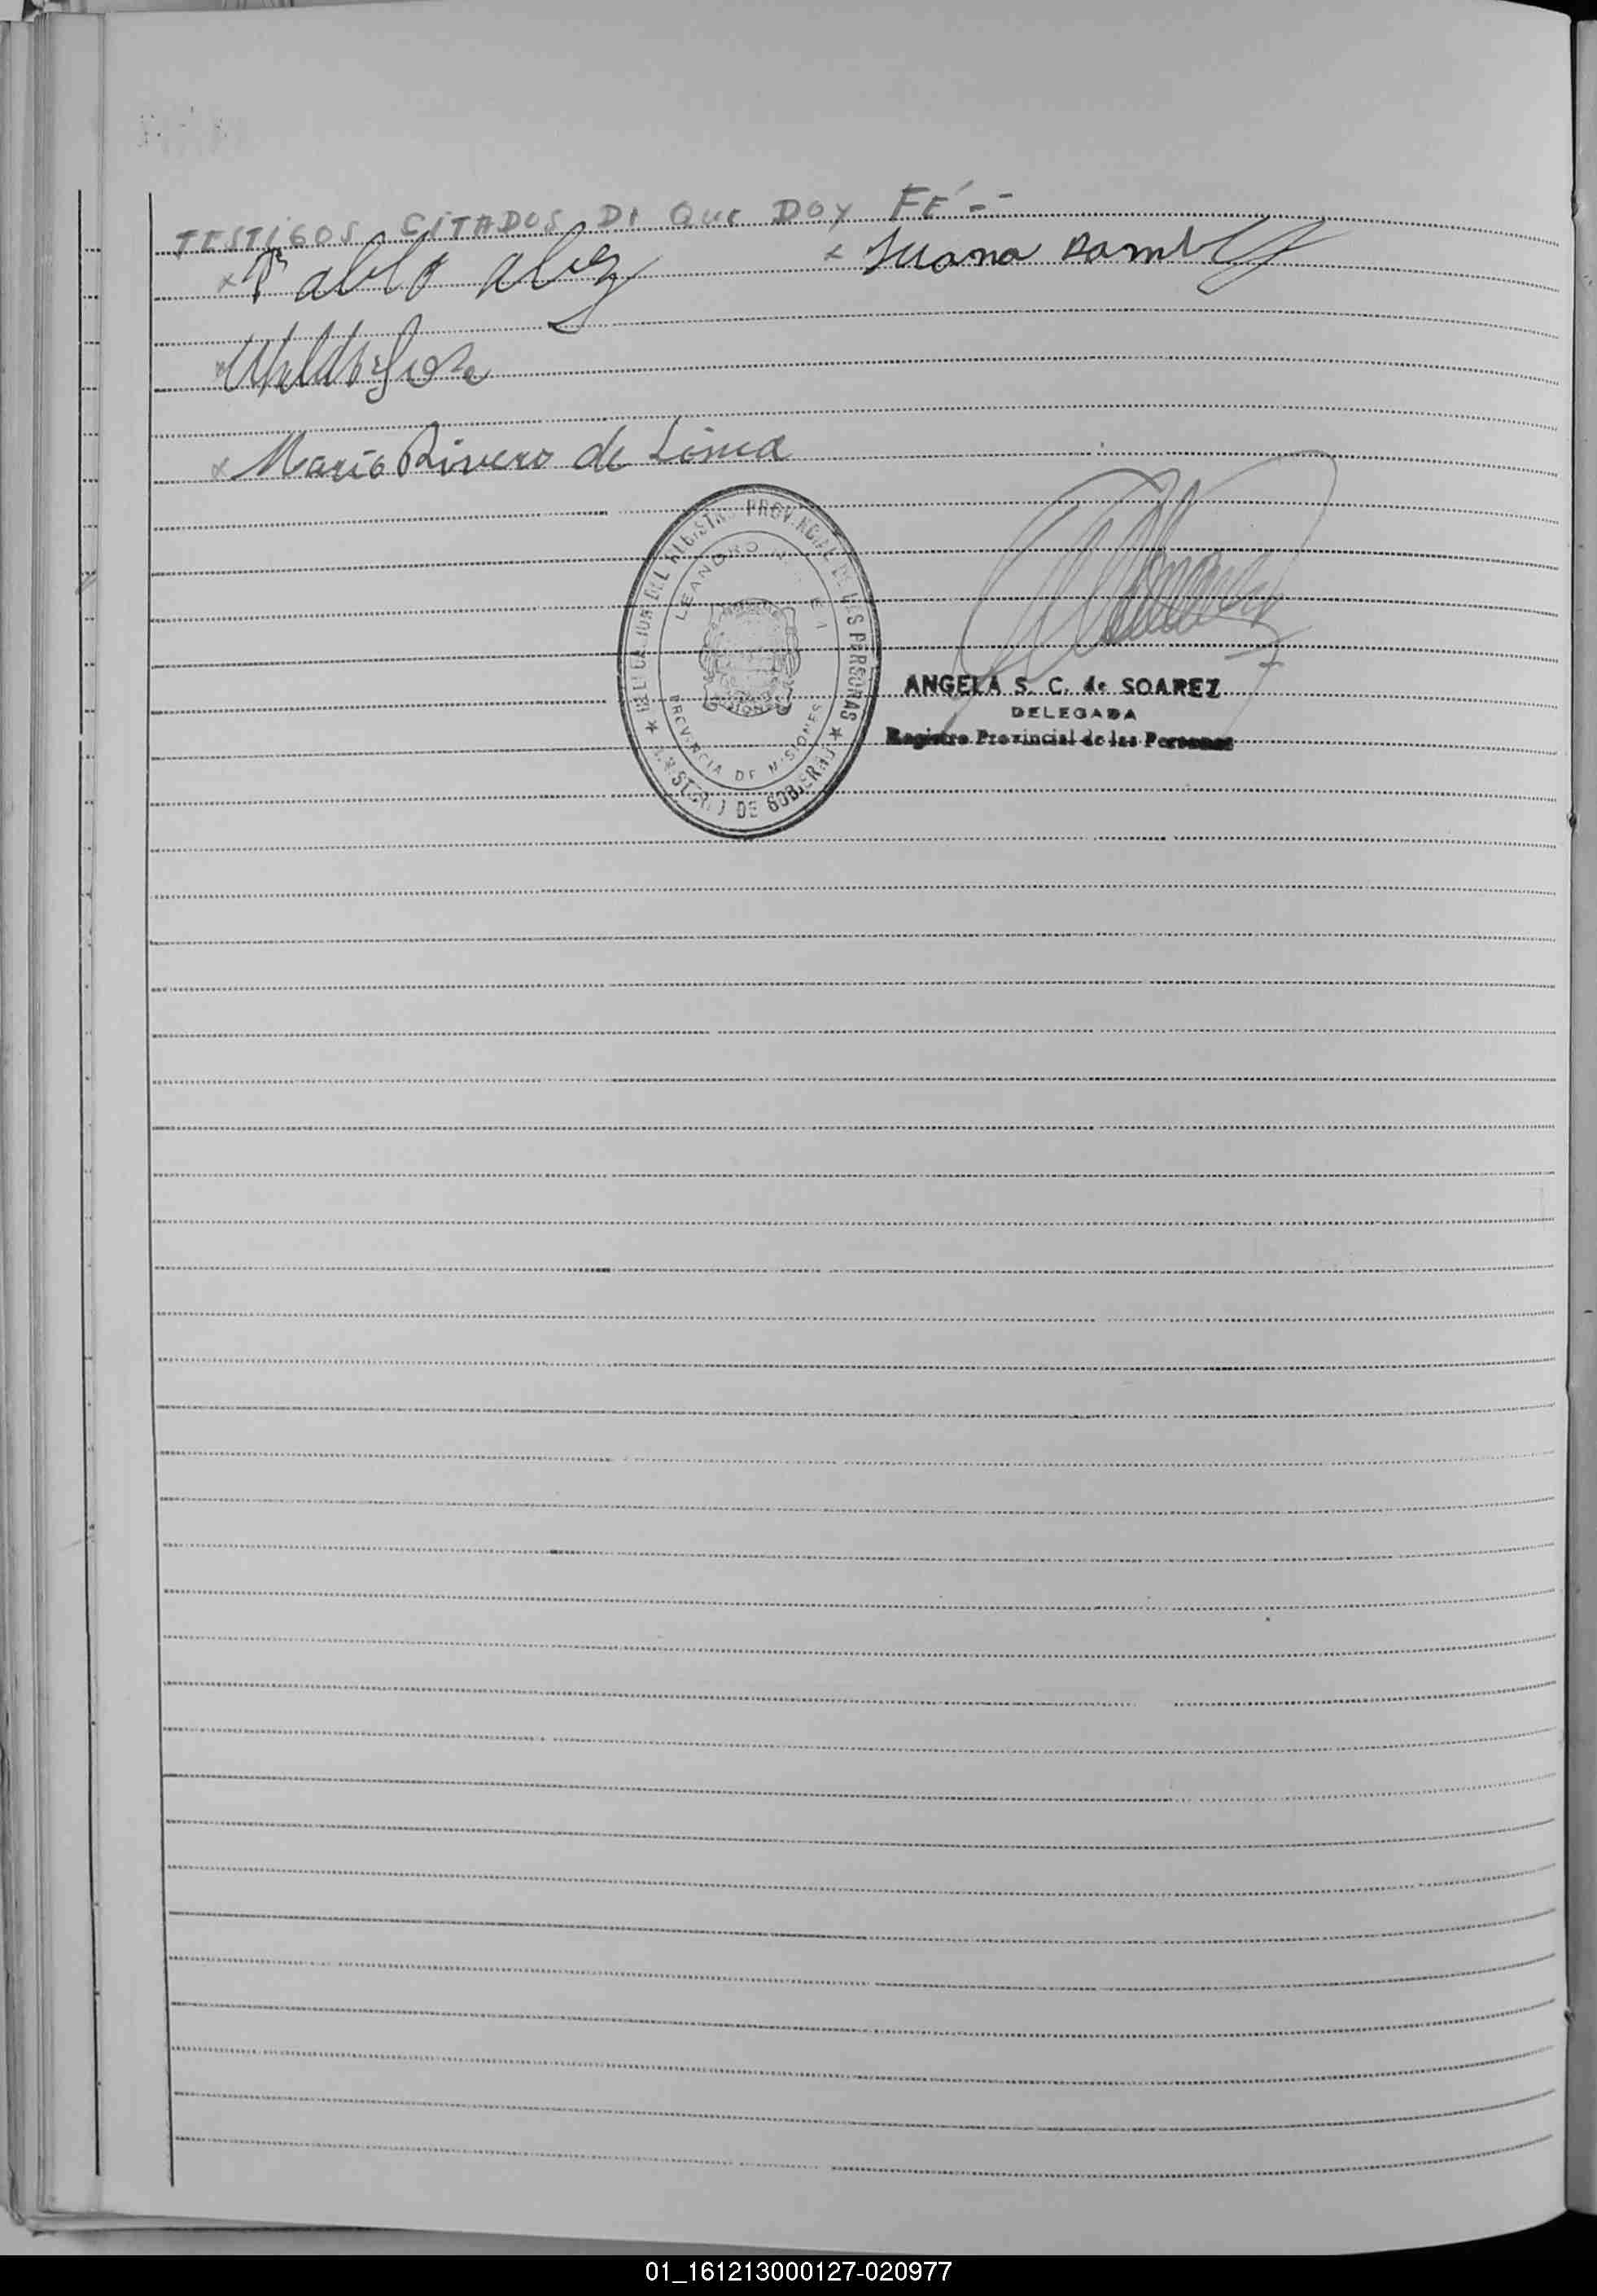 TESTIGOS CITADOS DE QUE DOY FÉ--
x Pablo Alez x Juana
x Mario Rivero de Lima
DELEGACION DEL REGISTRO PROVINCIAL DE LAS PERSONAS
LEANDRO N.
PROVINCIA DE MISIONES
MISIONES
MINISTERIO DE GOBIERNO
ANGELA S. C. de SOAREZ
DELEGADA
Registro Provincial de las Personas
01_161213000127-020977